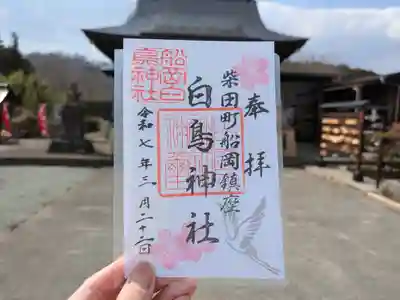 奉拝
柴田町船岡鎮座
白鳥神社
令和七年三月二十二日
船岡白鳥神社